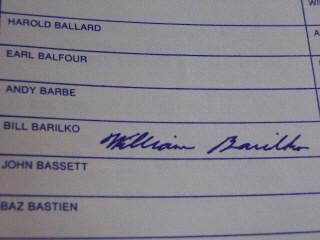 WI
HAROLD BALLARD
A
EARL BALFOUR
ANDY BARBE
BILL BARILKO William Barilko
JOHN BASSETT
BAZ BASTIEN